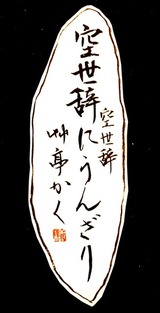 空世辞
空世辞にうんざり
艸亭かく